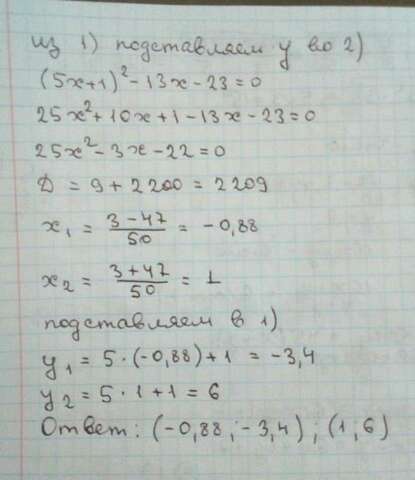 из 1) подставляем y во 2)
(5x+1)²-13x-23=0
25x²+10x+1-13x-23=0
25x²-3x-22=0
D = 9+2200=2209
x₁ = (3-47)/50 = -0,88
x₂ = (3+47)/50 = 1
подставляем в 1)
y₁ = 5·(-0,88)+1 = -3,4
y₂ = 5·1+1=6
Ответ: (-0,88; -3,4); (1; 6)